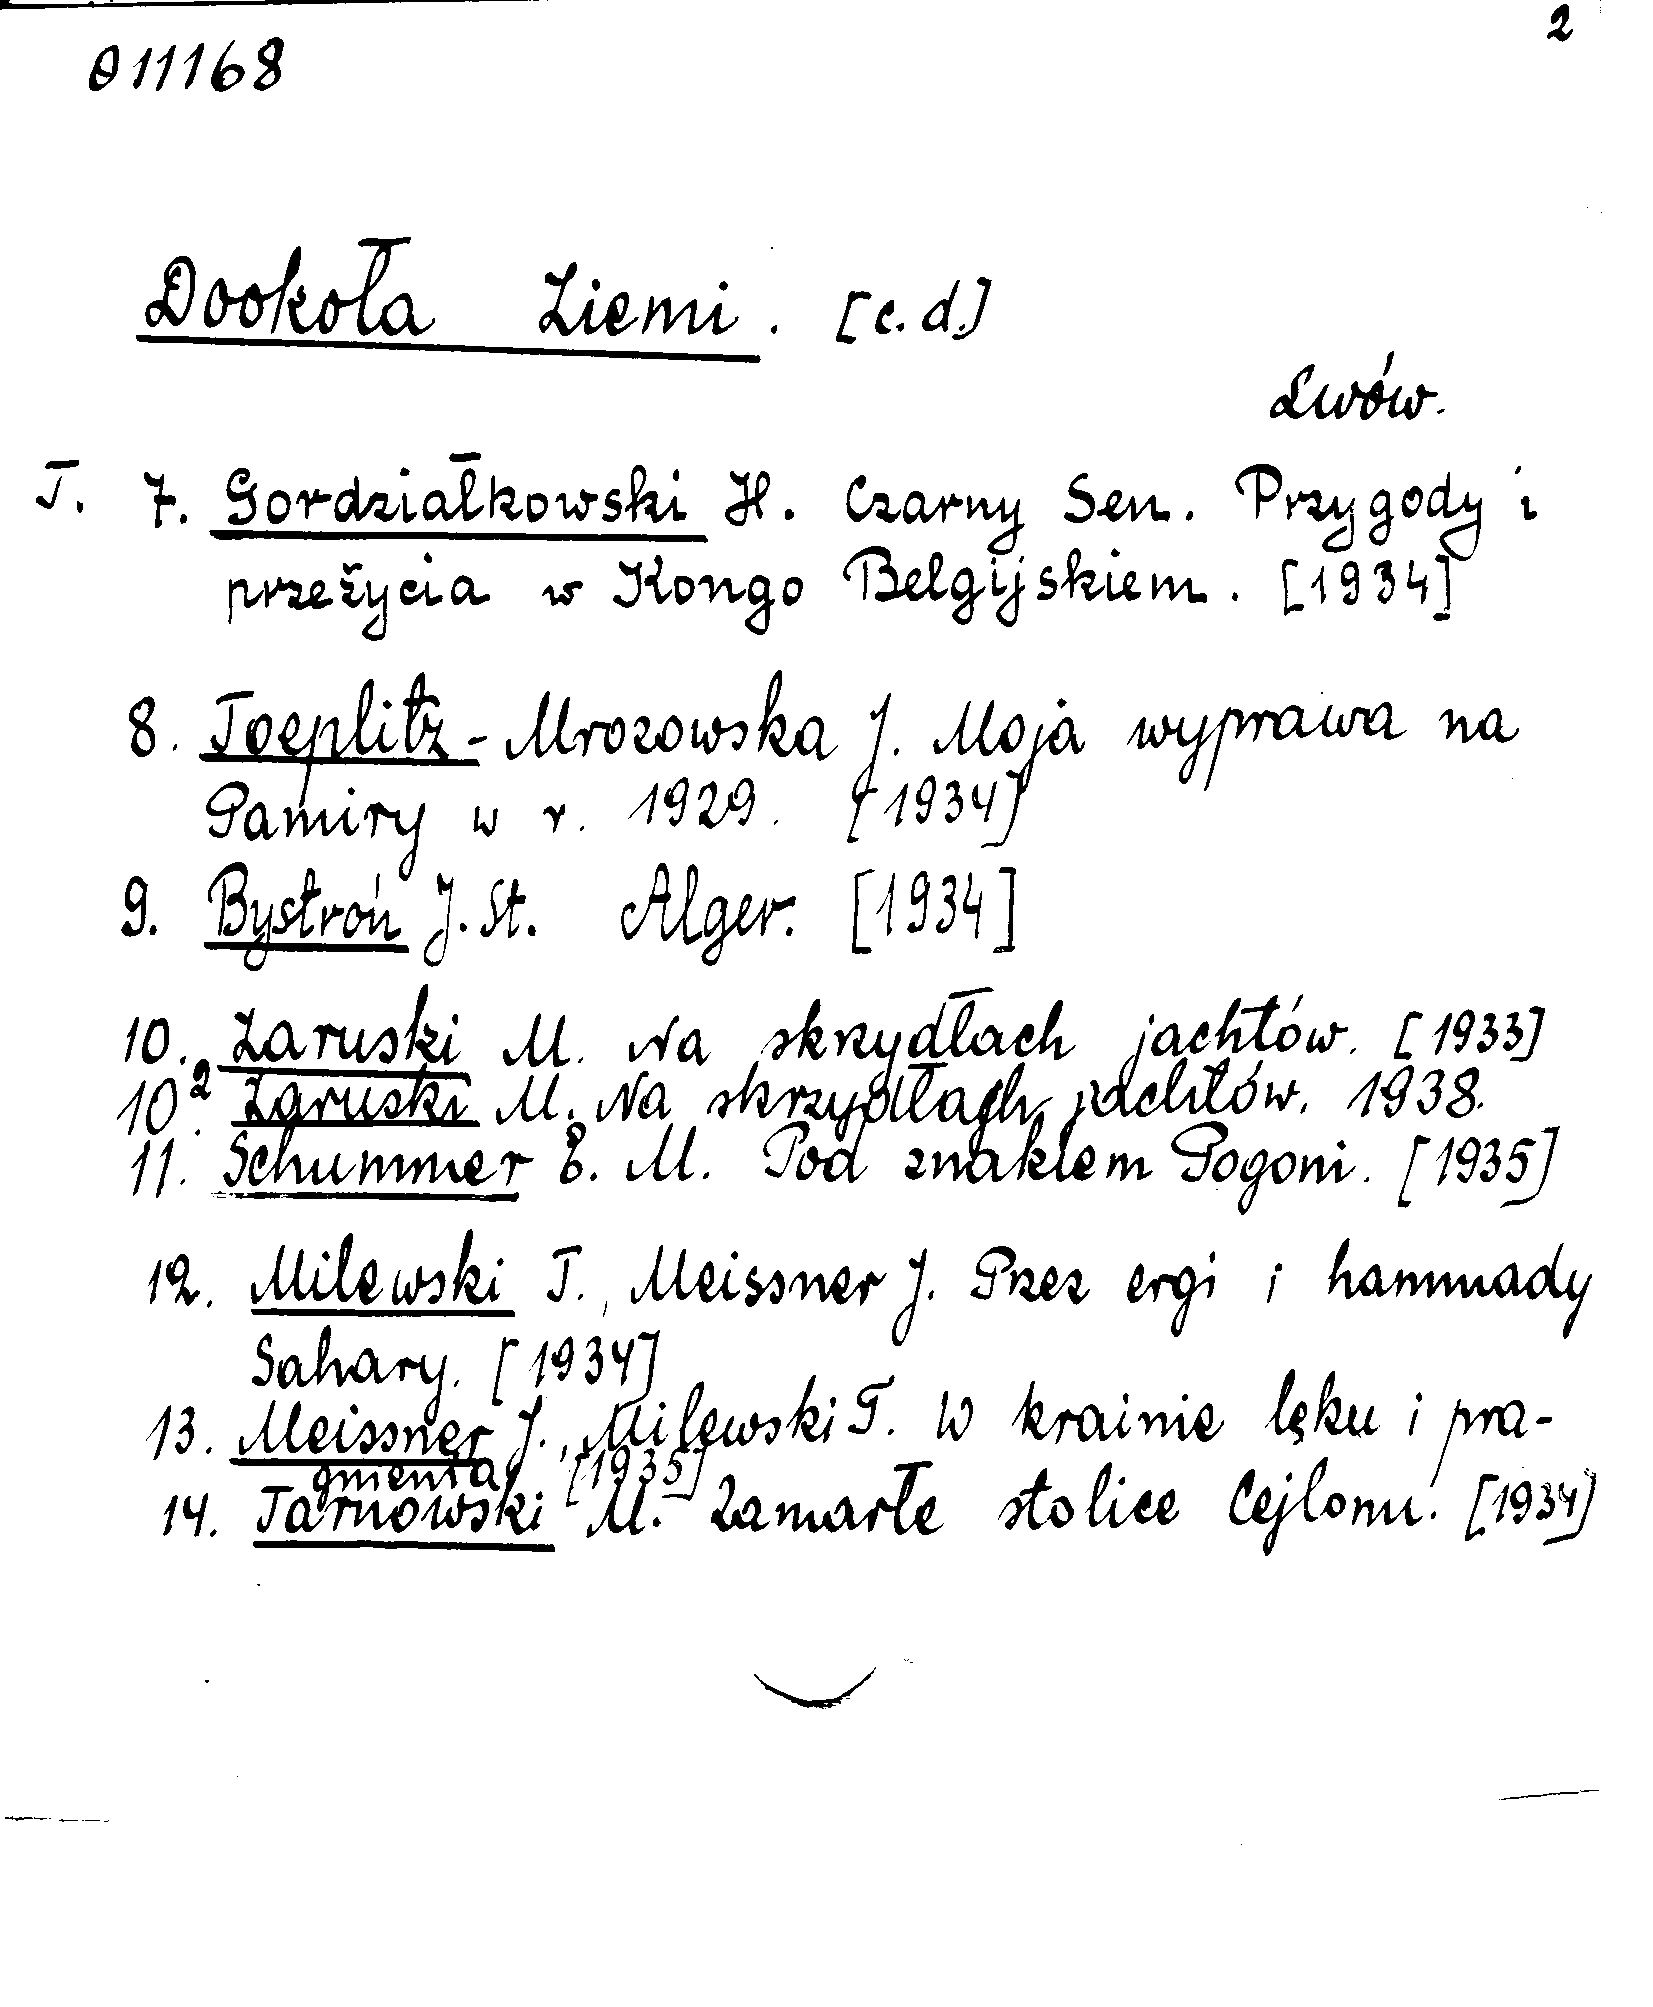 2
011168
Dookoła Ziemi. [c.d.]
Lwów.
T. 7. Gordziałkowski H. Czarny Sen. Przygody i
przeżycia w Kongo Belgijskiem. [1934]
8. Toeplitz-Mrozowska J. Moja wyprawa na
Pamiry w r. 1929. [1934]
9. Bystroń J. St. Alger. [1934]
10. Zaruski M. Na skrzydłach jachtów. [1933]
10². Zaruski M. Na skrzydłach jachtów. 1938.
11. Schummer E. M. Pod znakiem Pogoni. [1935]
12. Milewski T., Meissner J. Przez ergi i hammady
Sahary. [1934]
13. Meissner J., Milewski T. W krainie lęku i pra-
gnienia [1935]
14. Tarnowski M. Zamarłe stolice Cejlonu. [1934]